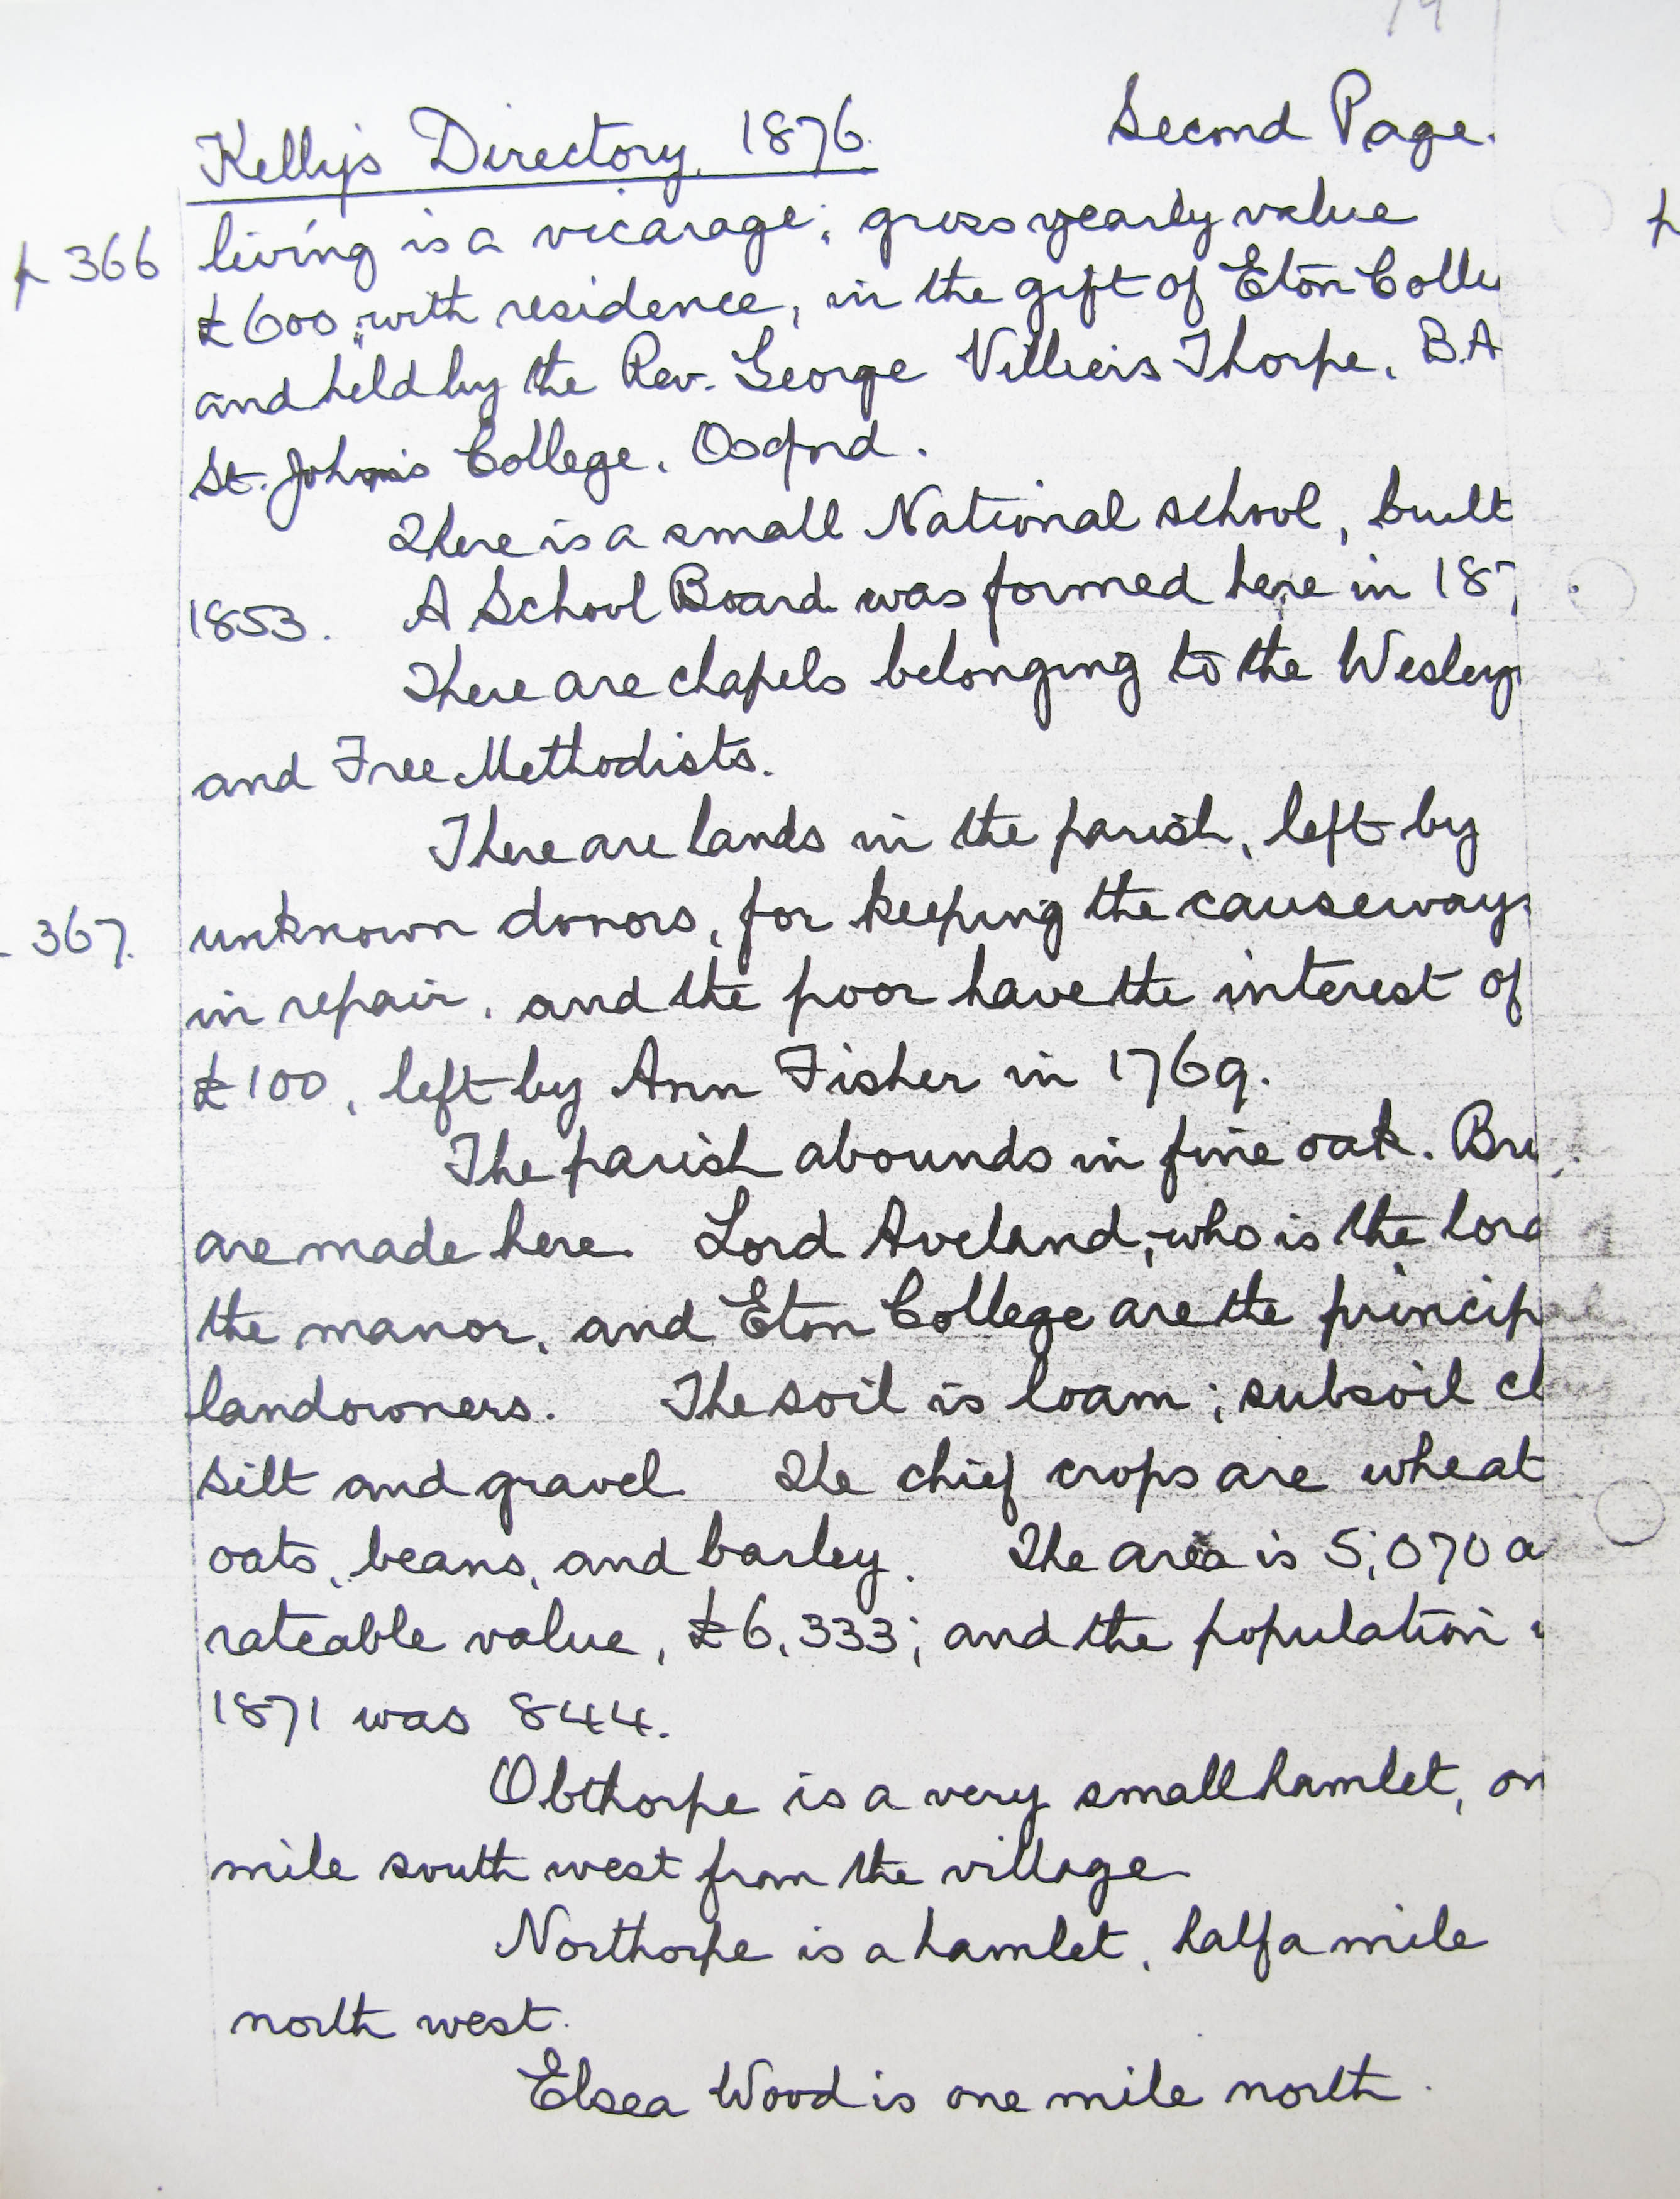 Kelly's Directory, 1876. Second Page.
p 366 living is a vicarage; gross yearly value
£600, with residence, in the gift of Eton Colle
and held by the Rev. George Villiers Thorpe, B.A
St. John's College, Oxford.
There is a small National school, built
1853. A School Board was formed here in 187
There are chapels belonging to the Wesley
and Free Methodists.
There are lands in the parish, left by
367. unknown donors, for keeping the causeways
in repair, and the poor have the interest of
£100, left by Ann Fisher in 1769.
The parish abounds in fine oak. Bri
are made here. Lord Aveland, who is the lord
the manor, and Eton College are the principal
landowners. The soil is loam; subsoil cl
silt and gravel The chief crops are wheat
oats, beans, and barley. The area is 5,070 a
rateable value, £6,333; and the population i
1871 was 844.
Obthorpe is a very small hamlet, on
mile south west from the village
Northorpe is a hamlet, half a mile
north west.
Elsea Wood is one mile north.